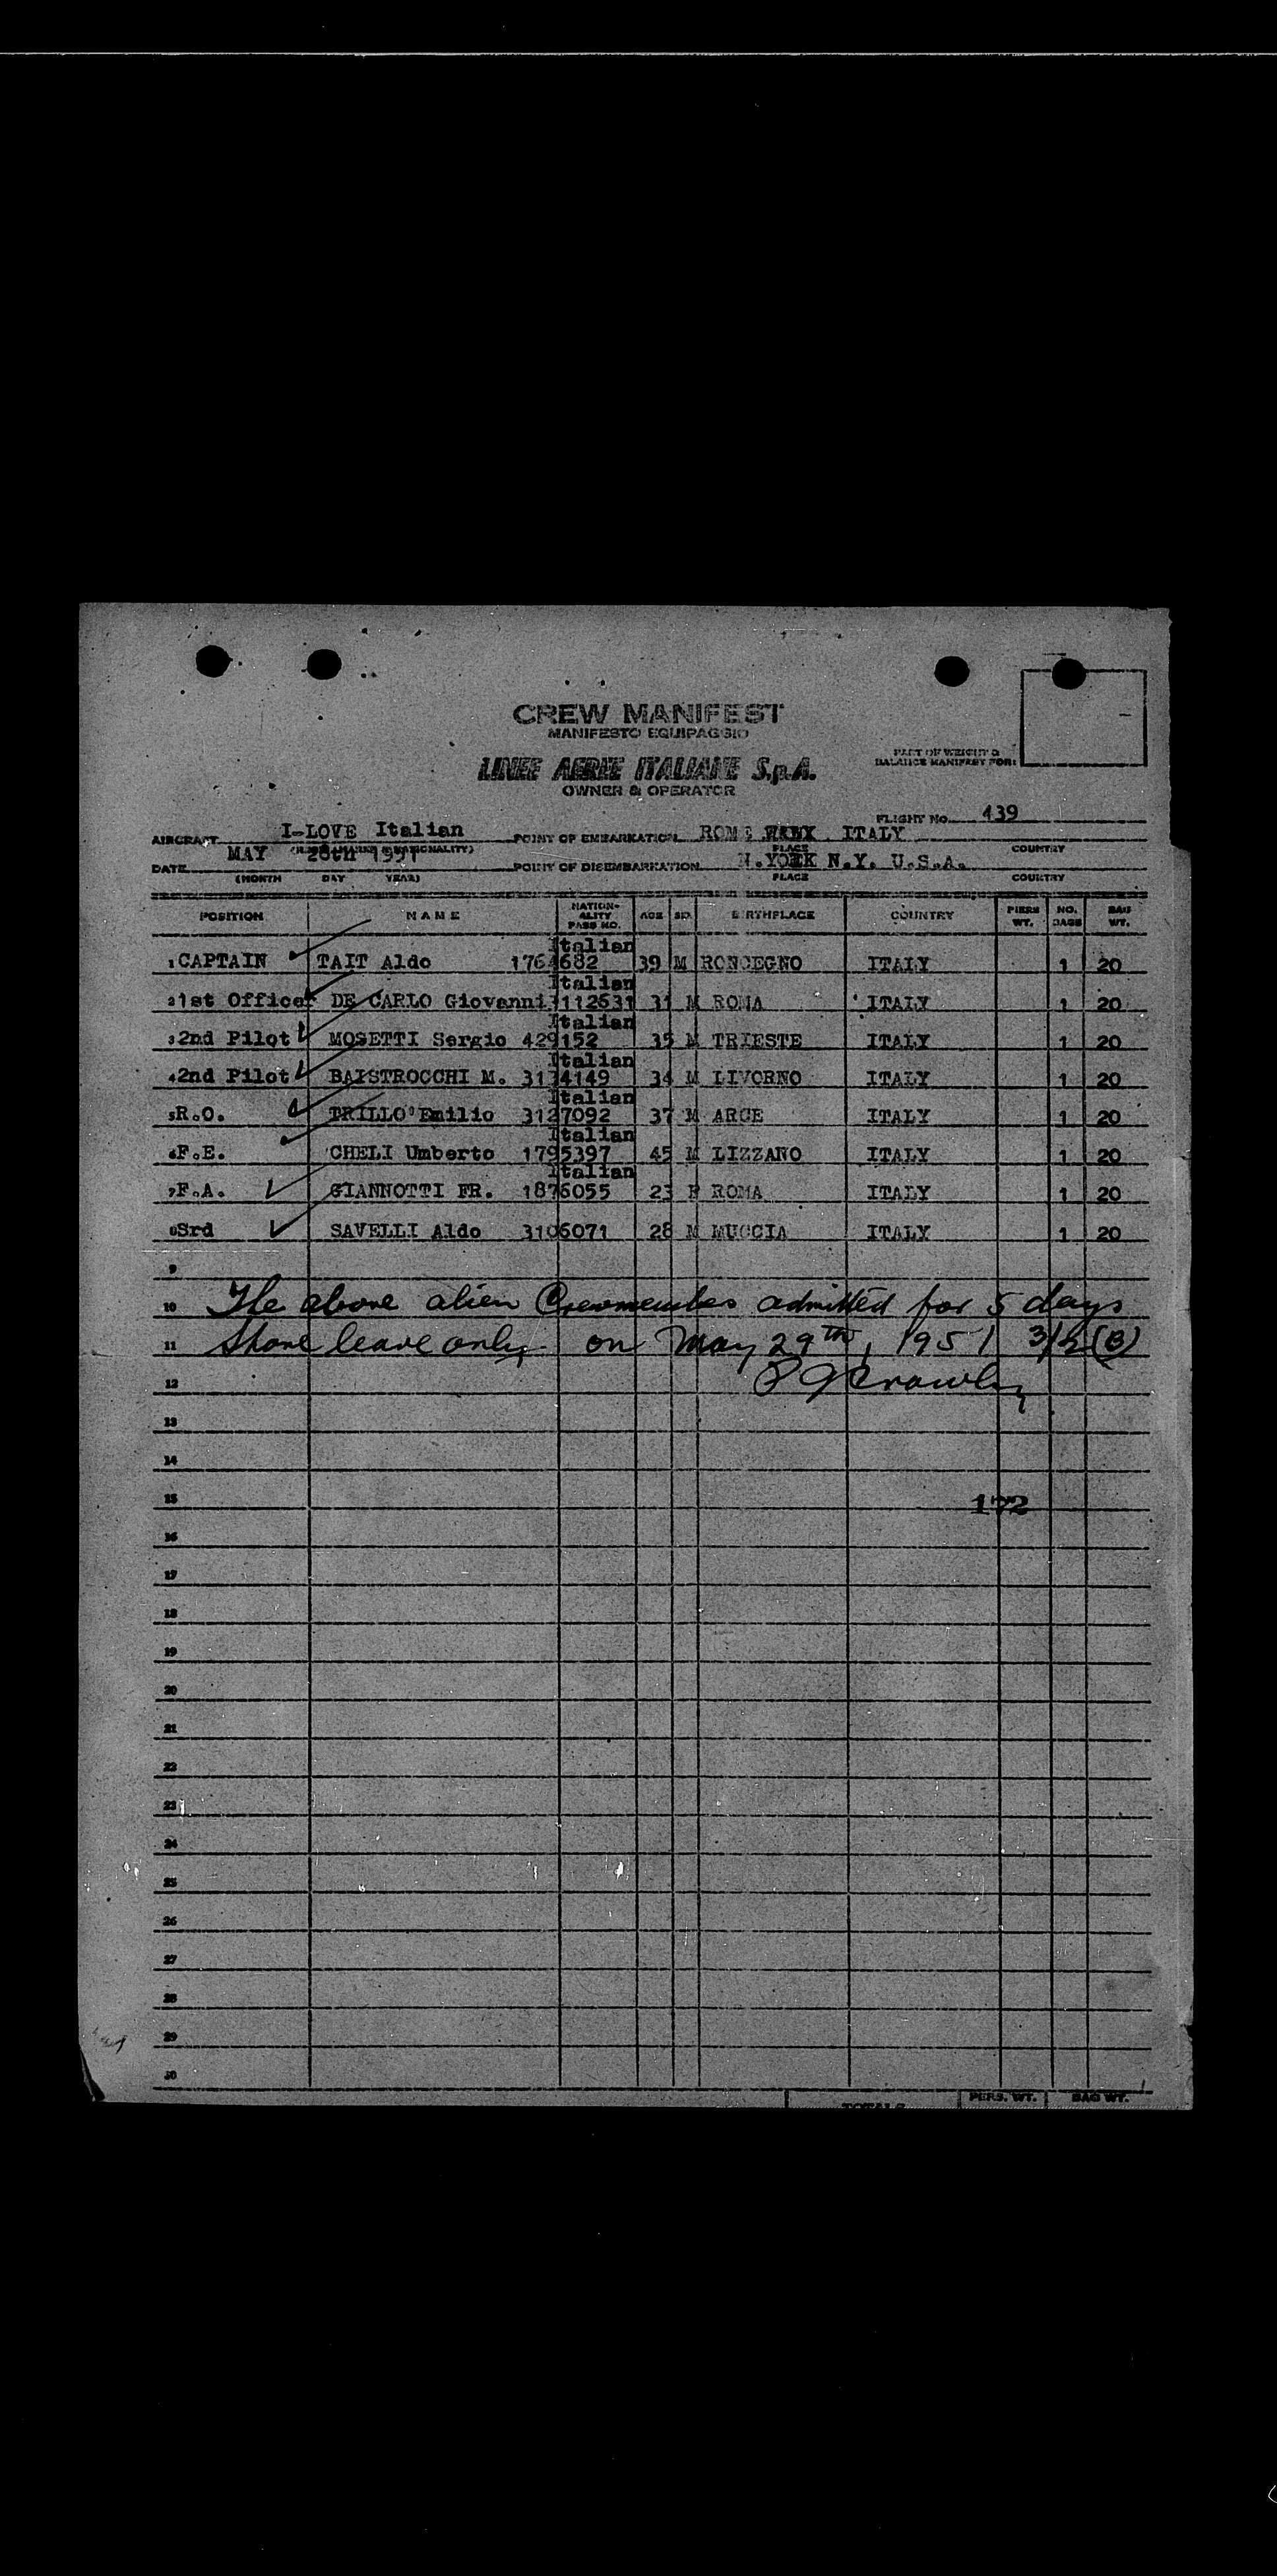 CREW MANIFEST
MANIFESTO EQUIPAGGIO
LINEE AEREE ITALIANE S.p.A.
OWNER & OPERATOR
PART OF WEIGHT &
BALANCE MANIFEST FOR:
FLIGHT NO. 439
AIRCRAFT I-LOVE Italian POINT OF EMBARKATION ROME ITALY
PLACE COUNTRY
DATE MAY 28th POINT OF DISEMBARKATION N.YORK N.Y. U.S.A.
(MONTH DAY YEAR) PLACE COUNTRY
POSITION NAME NATION-ALITY PASS NO. AGE BIRTHPLACE COUNTRY WT. NO. BAGS BAG WT.
Italian
1 CAPTAIN TAIT Aldo 1764682 39 M RONCEGNO ITALY 1 20
Italian
2 1st Officer DE CARLO Giovanni 3112631 31 M ROMA ITALY 1 20
Italian
3 2nd Pilot MOSETTI Sergio 429152 35 M TRIESTE ITALY 1 20
Italian
4 2nd Pilot BAISTROCCHI M. 3134149 34 M LIVORNO ITALY 1 20
Italian
5 R.O. TRILLO' Emilio 3127092 37 M ARCE ITALY 1 20
Italian
6 F.E. CHELI Umberto 1795397 45 M LIZZANO ITALY 1 20
Italian
7 F.A. GIANNOTTI FR. 1876055 23 F ROMA ITALY 1 20
8 Srd SAVELLI Aldo 3106071 28 M MUCCIA ITALY 1 20
9
10 The above alien Crewmembers admitted for 5 days
11 Shore leave only on May 29th, 1951 3/2 (B)
12 P J Crowley
13
14
15 172
16
17
18
19
20
21
22
23
24
25
26
27
28
29
30
TOTALS PERS. WT. BAG WT.